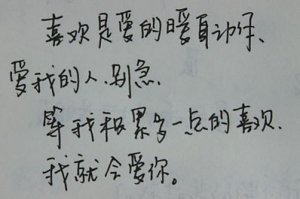 喜欢是爱的暖自动你、
爱我的人、别急、
等我积累多一点的喜欢、
我就会爱你。